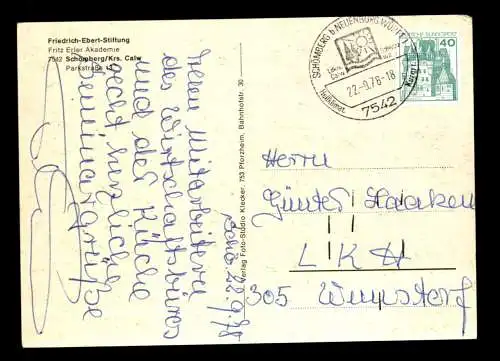 Friedrich-Ebert-Stiftung
Fritz Erler Akademie
7542 Schömberg/Krs. Calw
Parkstraße
Allen Mitarbeitern
des Wirtschaftsbüros
und der Küche
recht herzliche
Seminargrüße
22.9.78
Verlag Foto-Studio Klecker, 753 Pforzheim, Bahnhofstr. 30
SCHÖMBERG b NEUENBÜRG WÜRTT
Calw
Heilklimat.
Kurort
22.-9.78-18
7542
DEUTSCHE BUNDESPOST
40
Herrn
Günter Haaken
LKH
305 Wunstorf